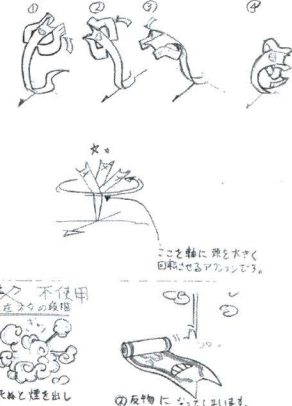 ① ② ③ ④
ここを軸に 頭を大きく
回転させるアクションです。
不使用
ぬと煙を出し
② 反物に なってしまいます。